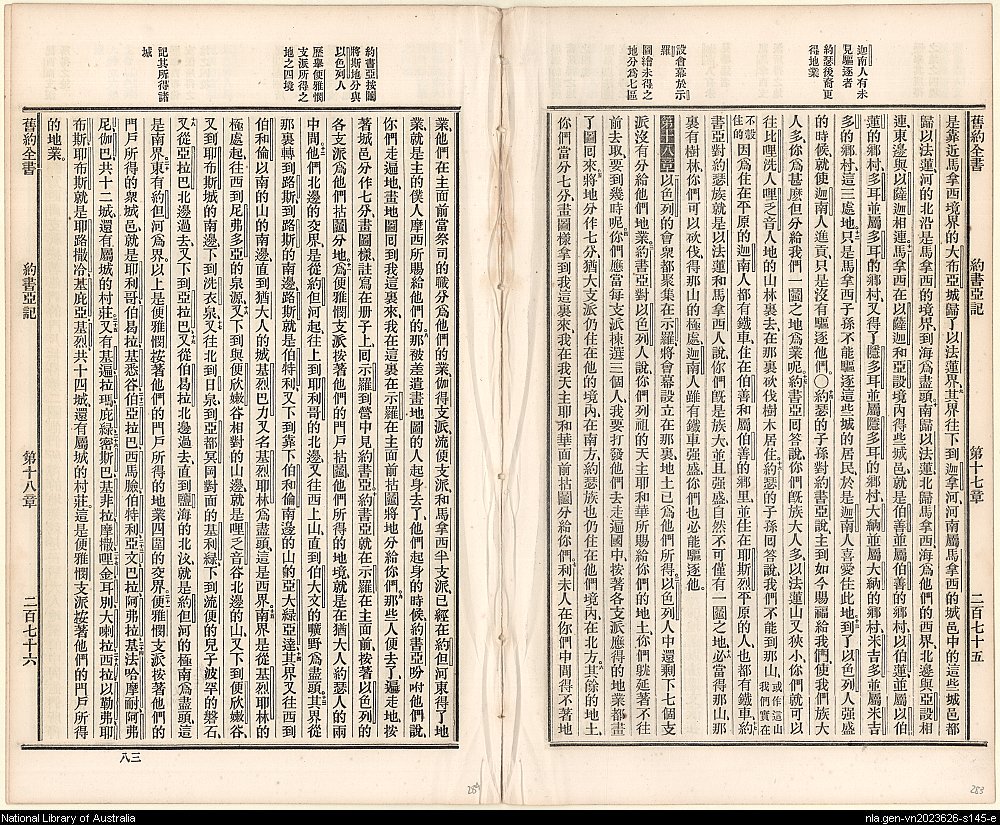 迦南人有未
見驅逐者
約瑟後裔更
得地業
設會幕於示
羅
圖繪未得之
地分爲七區
舊約全書 約書亞記 第十七章 二百七十五
是靠近馬拿西境界的大布亞城歸了以法蓮、其界往下到迦拿河、河南屬馬拿西的城邑中的這些城邑都
歸以法蓮、河的北沿是馬拿西的境界、到海爲盡頭、南歸以法蓮、北歸馬拿西、海爲他們的西界、北邊與亞設相
連、東邊與以薩迦相連、馬拿西在以薩迦和亞設境內、得些城邑、就是伯善並屬伯善的鄉村、以伯蓮並屬以伯
蓮的鄉村、多耳並屬多耳的鄉村、又得了隱多耳並屬隱多耳的鄉村、大納並屬大納的鄉村、米吉多並屬米吉
多的鄉村、這三處地、只是馬拿西子孫不能驅逐這些城的居民、於是迦南人喜愛住此地、到了以色列人強盛
的時候、就使迦南人進貢、只是沒有驅逐他們。〇約瑟的子孫對約書亞說、主到如今賜福給我們、使我們族大
人多、你爲甚麼但分給我們一䦰之地爲業呢、約書亞回答說、你們旣族大人多、以法蓮山又狹小、你們就可以
往比哩洗人哩乏音人地的山林裏去、在那裏砍伐樹木居住、約瑟的子孫回答說、我們不能到那山、或作這山我們實在
不彀住的因爲住在平原的迦南人、都有鐵車、住在伯善和屬伯善的鄉里、並住在耶斯烈平原的人、也都有鐵車、約
書亞對約瑟族就是以法蓮和馬拿西人說、你們旣是族大並且強盛、自然不可僅有一䦰之地、必當得那山、那
裏有樹林、你們可以砍伐、得那山的極處、迦南人雖有鐵車強盛、你們也必能驅逐他。
第十八章以色列的會衆都聚集在示羅、將會幕設立在那裏、地土已爲他們所得、以色列人中還剩下七個支
派、沒有分給他們地業、約書亞對以色列人說、你們列祖的天主耶和華所賜給你們的地土、你們躭延著不往
前去取、要到幾時呢、你們應當每支派棟選三個人、我要打發他們去、走遍國中、按著各支派應得的地業、都畫
了圖回來、將地分作七分、猶大支派仍住在他的境內在南方、約瑟族也仍住在他們境內在北方、其餘的地土、
你們當分七分畫圖樣拿到我這裏來、我在我天主耶和華面前拈䦰分給你們、利未人在你們中間得不著地
約書亞按䦰
將斯地分與
以色列人
歷舉便雅憫
支派所得之
地之四境
記其所得諸
城
業、他們在主面前當祭司的職分爲他們的業、伽得支派、流便支派和馬拿西半支派、已經在約但河東得了地
業、就是主的僕人摩西所賜給他們的、那被差遣畫地圖的人起身去了、他們起身的時候、約書亞吩咐他們說、
你們走遍地畫地圖回到我這裏來、我在這裏在示羅在主面前拈䦰將地分給你們、那些人便去了、遍走地、按
著城邑分作七分、畫圖樣註寫在册子上、回示羅到營中見約書亞、約書亞就在示羅在主面前、按著以色列的
各支派爲他們拈䦰分地、爲便雅憫支派按著他們的門戶拈䦰、他們所得的地境、就是在猶大人約瑟人的兩
中間、他們北邊的交界是從約但河起、往上到耶利哥的北邊、又往西上山、直到伯大文的曠野爲盡頭、其界從
那裏轉到路斯、到路斯的南邊、路斯就是伯特利、又下到靠下伯和倫南邊的山的亞大綠亞達、其界又往西到
伯和倫以南的山的南邊、直到猶大人的城基烈巴力、又名基烈耶林、爲盡頭、這是西界、南界是從基烈耶林的
極處起、往西到尼弗多亞的泉源、又下到與便欣嫩谷相對的山邊、就是哩乏音谷北邊的山、又下到便欣嫩谷、
又到耶布斯城的南邊、下到洗衣泉、又往北到日泉、到亞都冥岡對面的基利綠、下到流便的兒子波罕的磐石、
又從亞拉巴北邊過去、又下到亞拉巴、又從伯曷拉北邊過去、直到鹽海的北汊、就是約但河的極南爲盡頭、這
是南界、東有約但河爲界、以上是便雅憫按著他們的門戶所得的地業四圍的交界、便雅憫支派按著他們的
門戶所得的衆城邑、就是耶利哥、伯曷拉、基悉谷、伯亞拉巴、西馬臉、伯特利、亞文、巴拉、阿弗拉、基法哈摩耐、阿弗
尼、伽巴、共十二城、還有屬城的村莊、又有基遍、拉瑪、庇綠、密斯巴、基非拉、摩撒、哩金、耳別、大喇拉、西拉、以勒弗、耶
布斯、耶布斯就是耶路撒冷、基庇亞、基烈、共十四城、還有屬城的村莊。這是便雅憫支派按著他們的門戶所得
的地業。
舊約全書 約書亞記 第十八章 二百七十六
三八
284
283
National Library of Australia
nla.gen-vn2023626-s145-e